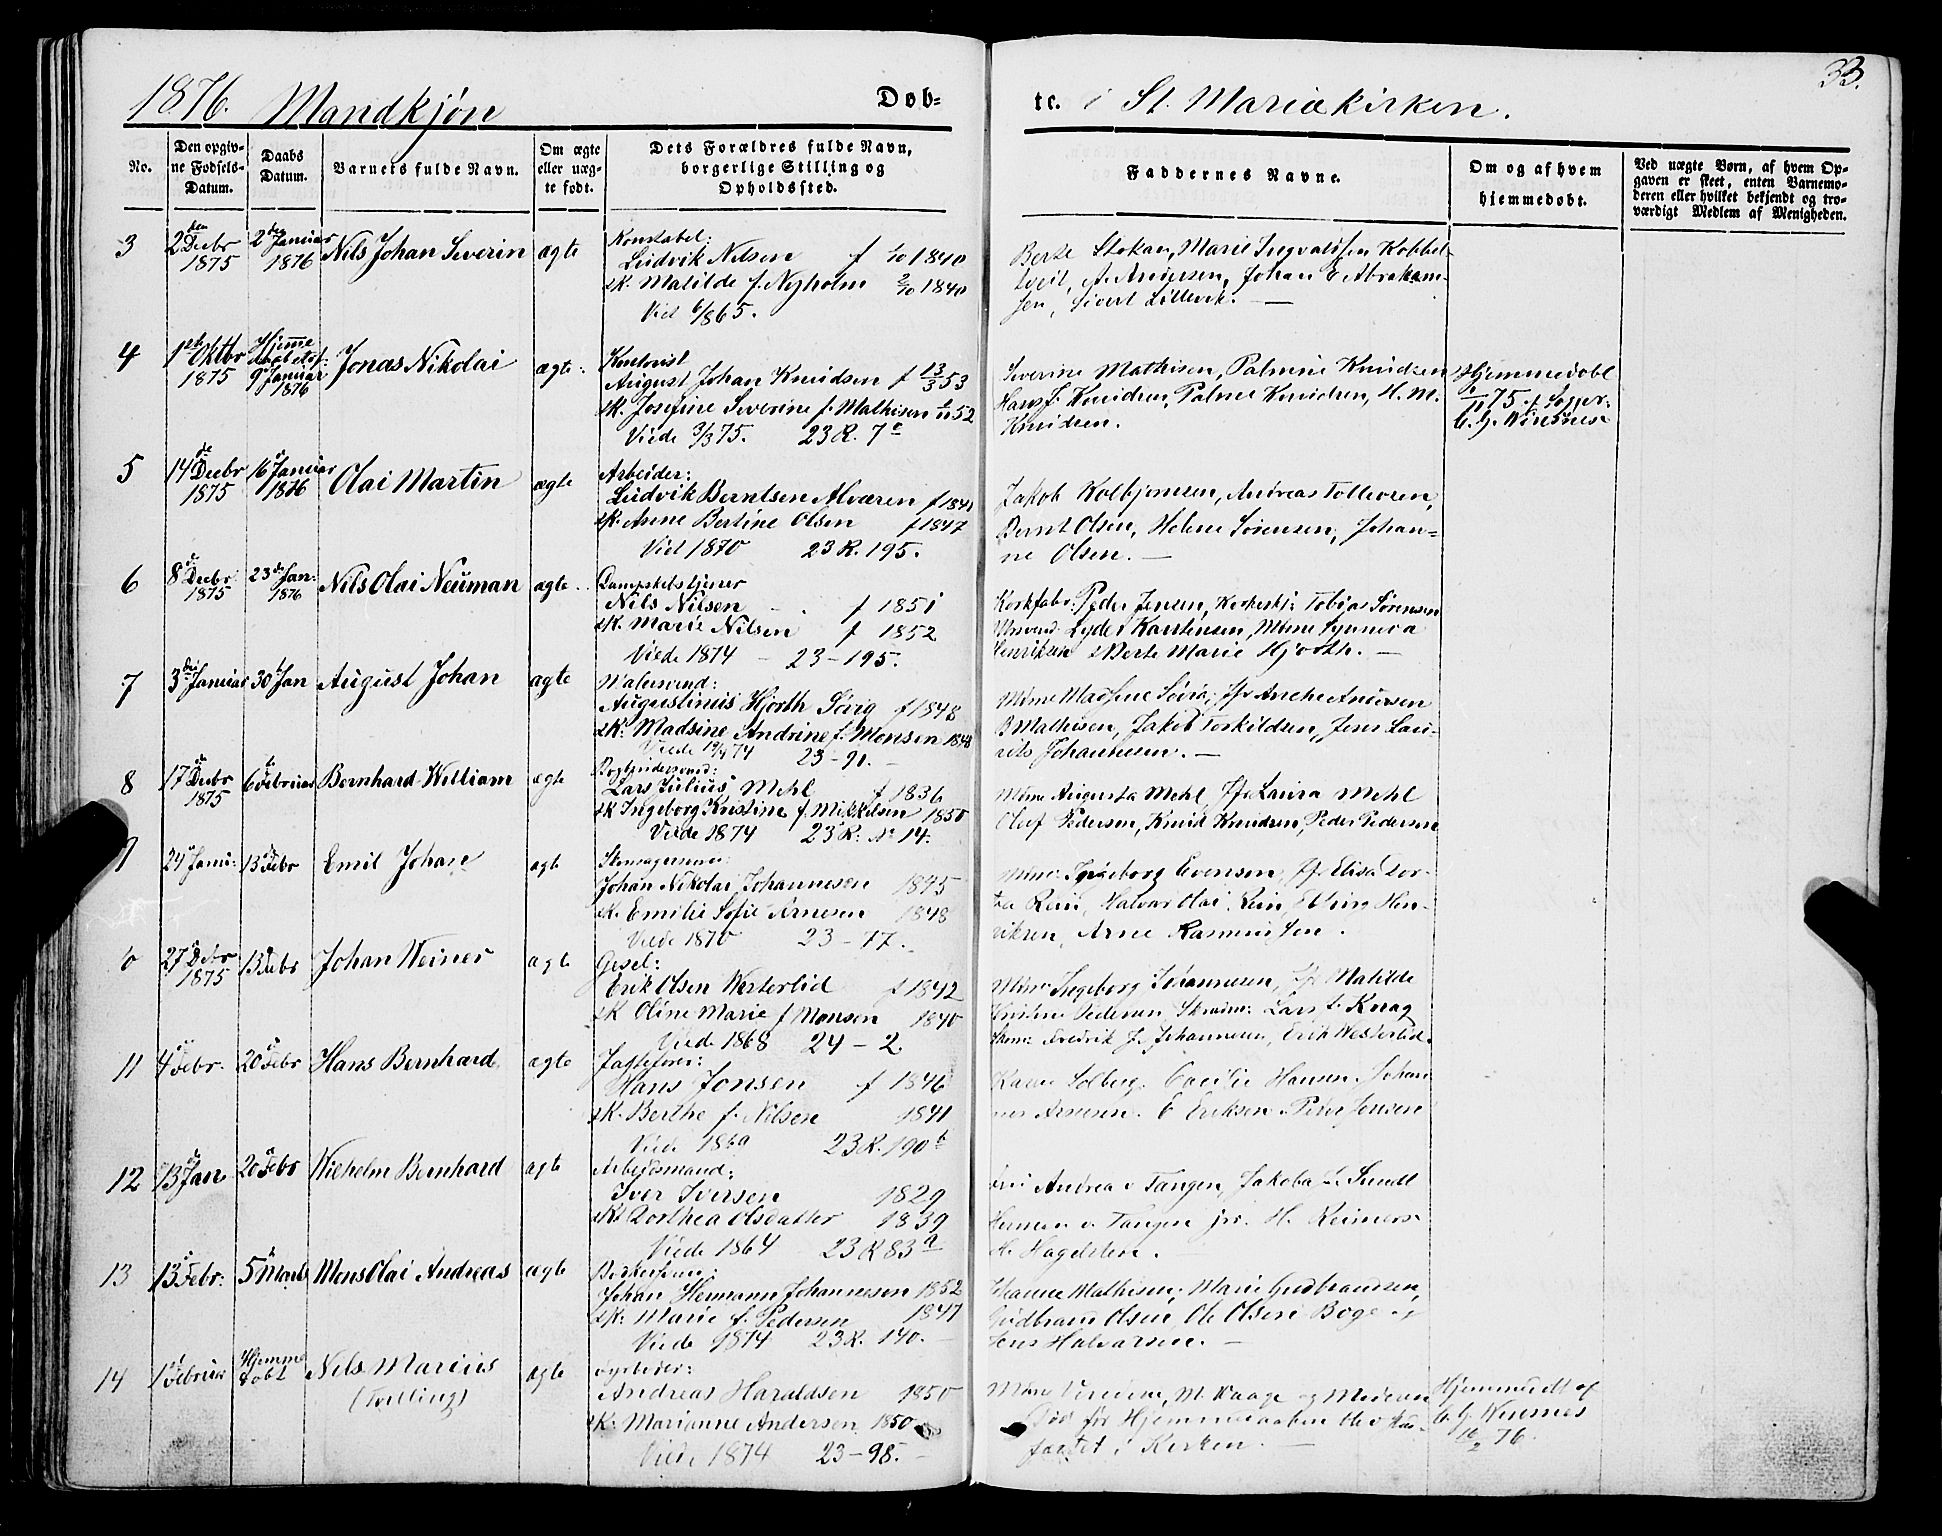 33.
1876. Mandkjøn Døb-
te. i St. Mariækirken.
No.
Den opgiv-
ne Fødsels-
Datum.
Daabs
Datum.
Barnets fulde Navn.
Om ægte
eller uæg-
te født.
Dets Forældres fulde Navn,
borgerlige Stilling og
Opholdssted.
Faddernes Navne.
Om og af hvem
hjemmedøbt.
Ved uægte Børn, af hvem Op-
gaven er skeet, enten Barnemo-
deren eller hvilket bekjendt og tro-
værdigt Medlem af Menigheden.
3
2den Decbr
1875
2den Januar
1876
Nils Johan Severin
ægte
Konstabel:
Ludvik Nilsen f 1840
sk. Matilde f. Nyholm 1840
Vid 6/865.
Berte Stokan, Marie Ingvaldsen Kobbel-
tveit, A. Andersen, Johan E. Abraham-
sen, Sivert Lillevik.
4
1st Oktbr
1875
Hjemme
9 Januar
1876
Jonas Nikolai
ægte
August Johan Knudsen f 13/3 53
sk. Josefine Severine f. Mathisen 52
Viede 3/3 75. 23 R. 7
Severine Mathisen, Palmine Knudsen
Hans J. Knudsen, Palme Knudsen, H. M.
Knudsen.
Hjemmedøbt
75 af
5
14de Decbr
1875
16 Januar
1876
Olai Martin
ægte
Arbeider:
Ludvik Berntsen Alvøren f 1841
sk. Anne Bertine Olsen f 1847
Vid 1870 23 R. 195.
Jakob Kolbjørnsen, Andreas Tollevsen,
Bernt Olsen, Helene Sørensen, Johan-
ne Olsen.
6
8 Decbr
1875
23de Jan:
1876
Nils Olai Neuman
ægte
Dampskibstjener
Nils Nilsen f 1851
sk. Marie Nilsen f 1852
Viede 1874 23-195.
Korkfabr. Peder Jensen, Tobias Sørensen
Lyder Karstensen, Mme Synneva
Henriksen Berte Marie Hjorth.
7
3die Januar
30 Jan
August Johan
ægte
Augustinus Hjorth Søvig f 1848
sk. Madsine Andrine f. Monsen 1848
Viede 74 23-91.
Mme Madsine Søvig, Jfr Anche Andersen
B Mathisen, Jakob Torkildsen, Jens Lau-
rits Johannesen.
8
17 Decbr
1875
6 Februar
Bernhard William
ægte
Lars Julius Mehl f 1836
sk Ingeborg Kristine f. Mikkelsen 1850
Viede 1874 23 R. No 14.
Mme Augusta Mehl, Jfr Laura Mehl
Oluf Pedersen, Knud Knudsen, Peder Pedersen
24 Janu:
13 Febr
Emil Johan
ægte
Johan Nikolai Johannesen 1845
sk. Emilie Sofie Arnesen 1848
Viede 1870 23-77.
Mme Ingeborg Evensen, Jfr Elisa Dor-
tea Rein, Halvar Olai Rein, Elling Hen-
riksen, Arne Rasmussen.
27 Decbr
1875
13 Febr
Johan Weiner
ægte
Gesel:
Erik Olsen Westerlid f 1842
sk Oline Marie f Monsen 1840
Viede 1868 24-2
Mme Ingeborg Johannesen, Jfr Matilde
Kristine Pedersen, Lars L. Knag
Fredrik J. Johannesen, Erik Westerlid.
11
4 Febr.
20 Febr
Hans Bernhard
ægte
Jagtefører:
Hans Jonsen f 1846
sk. Berthe f. Nilsen 1841
Viede 1869 23 R. 190 b
Karen Solberg. Cecilie Hansen. Johan
nes Arnesen. E Eriksen. Peter Jensen
12
13 Jan
20 Febr
Wilhelm Bernhard
ægte
Arbeidsmand:
Iver Iversen 1829
sk. Dorthea Olsdatter 1839
Viede 1864 23 R 83 a
Andrea v Tangen, Jakoba L. Sundt
Herman v. Tangen jr. H. Reimers
H. Hagelsten.
13
13 Febr:
5 Marts
Mons Olai Andreas
ægte
Johan Hermann Johannesen 1852
sk. Marie f. Pedersen 1847
Viede 1874 23 R. 140.
Johanne Mathisen, Marie Gudbrandsen,
Gudbrand Olsen Ole Olsen Boge
Jens Halvarsen.
14
1st
Februar
Hjemme
døbt
Nils Marius
(Tvilling)
ægte
Andreas Haraldsen 1850
sk. Marianne Andersen 1850
Viede 1874 23-98.
M. Waage og Moderen
Død før Hjemmedaaben blev stad-
fæstet i Kirken.
Hjemmedøbt af
76.